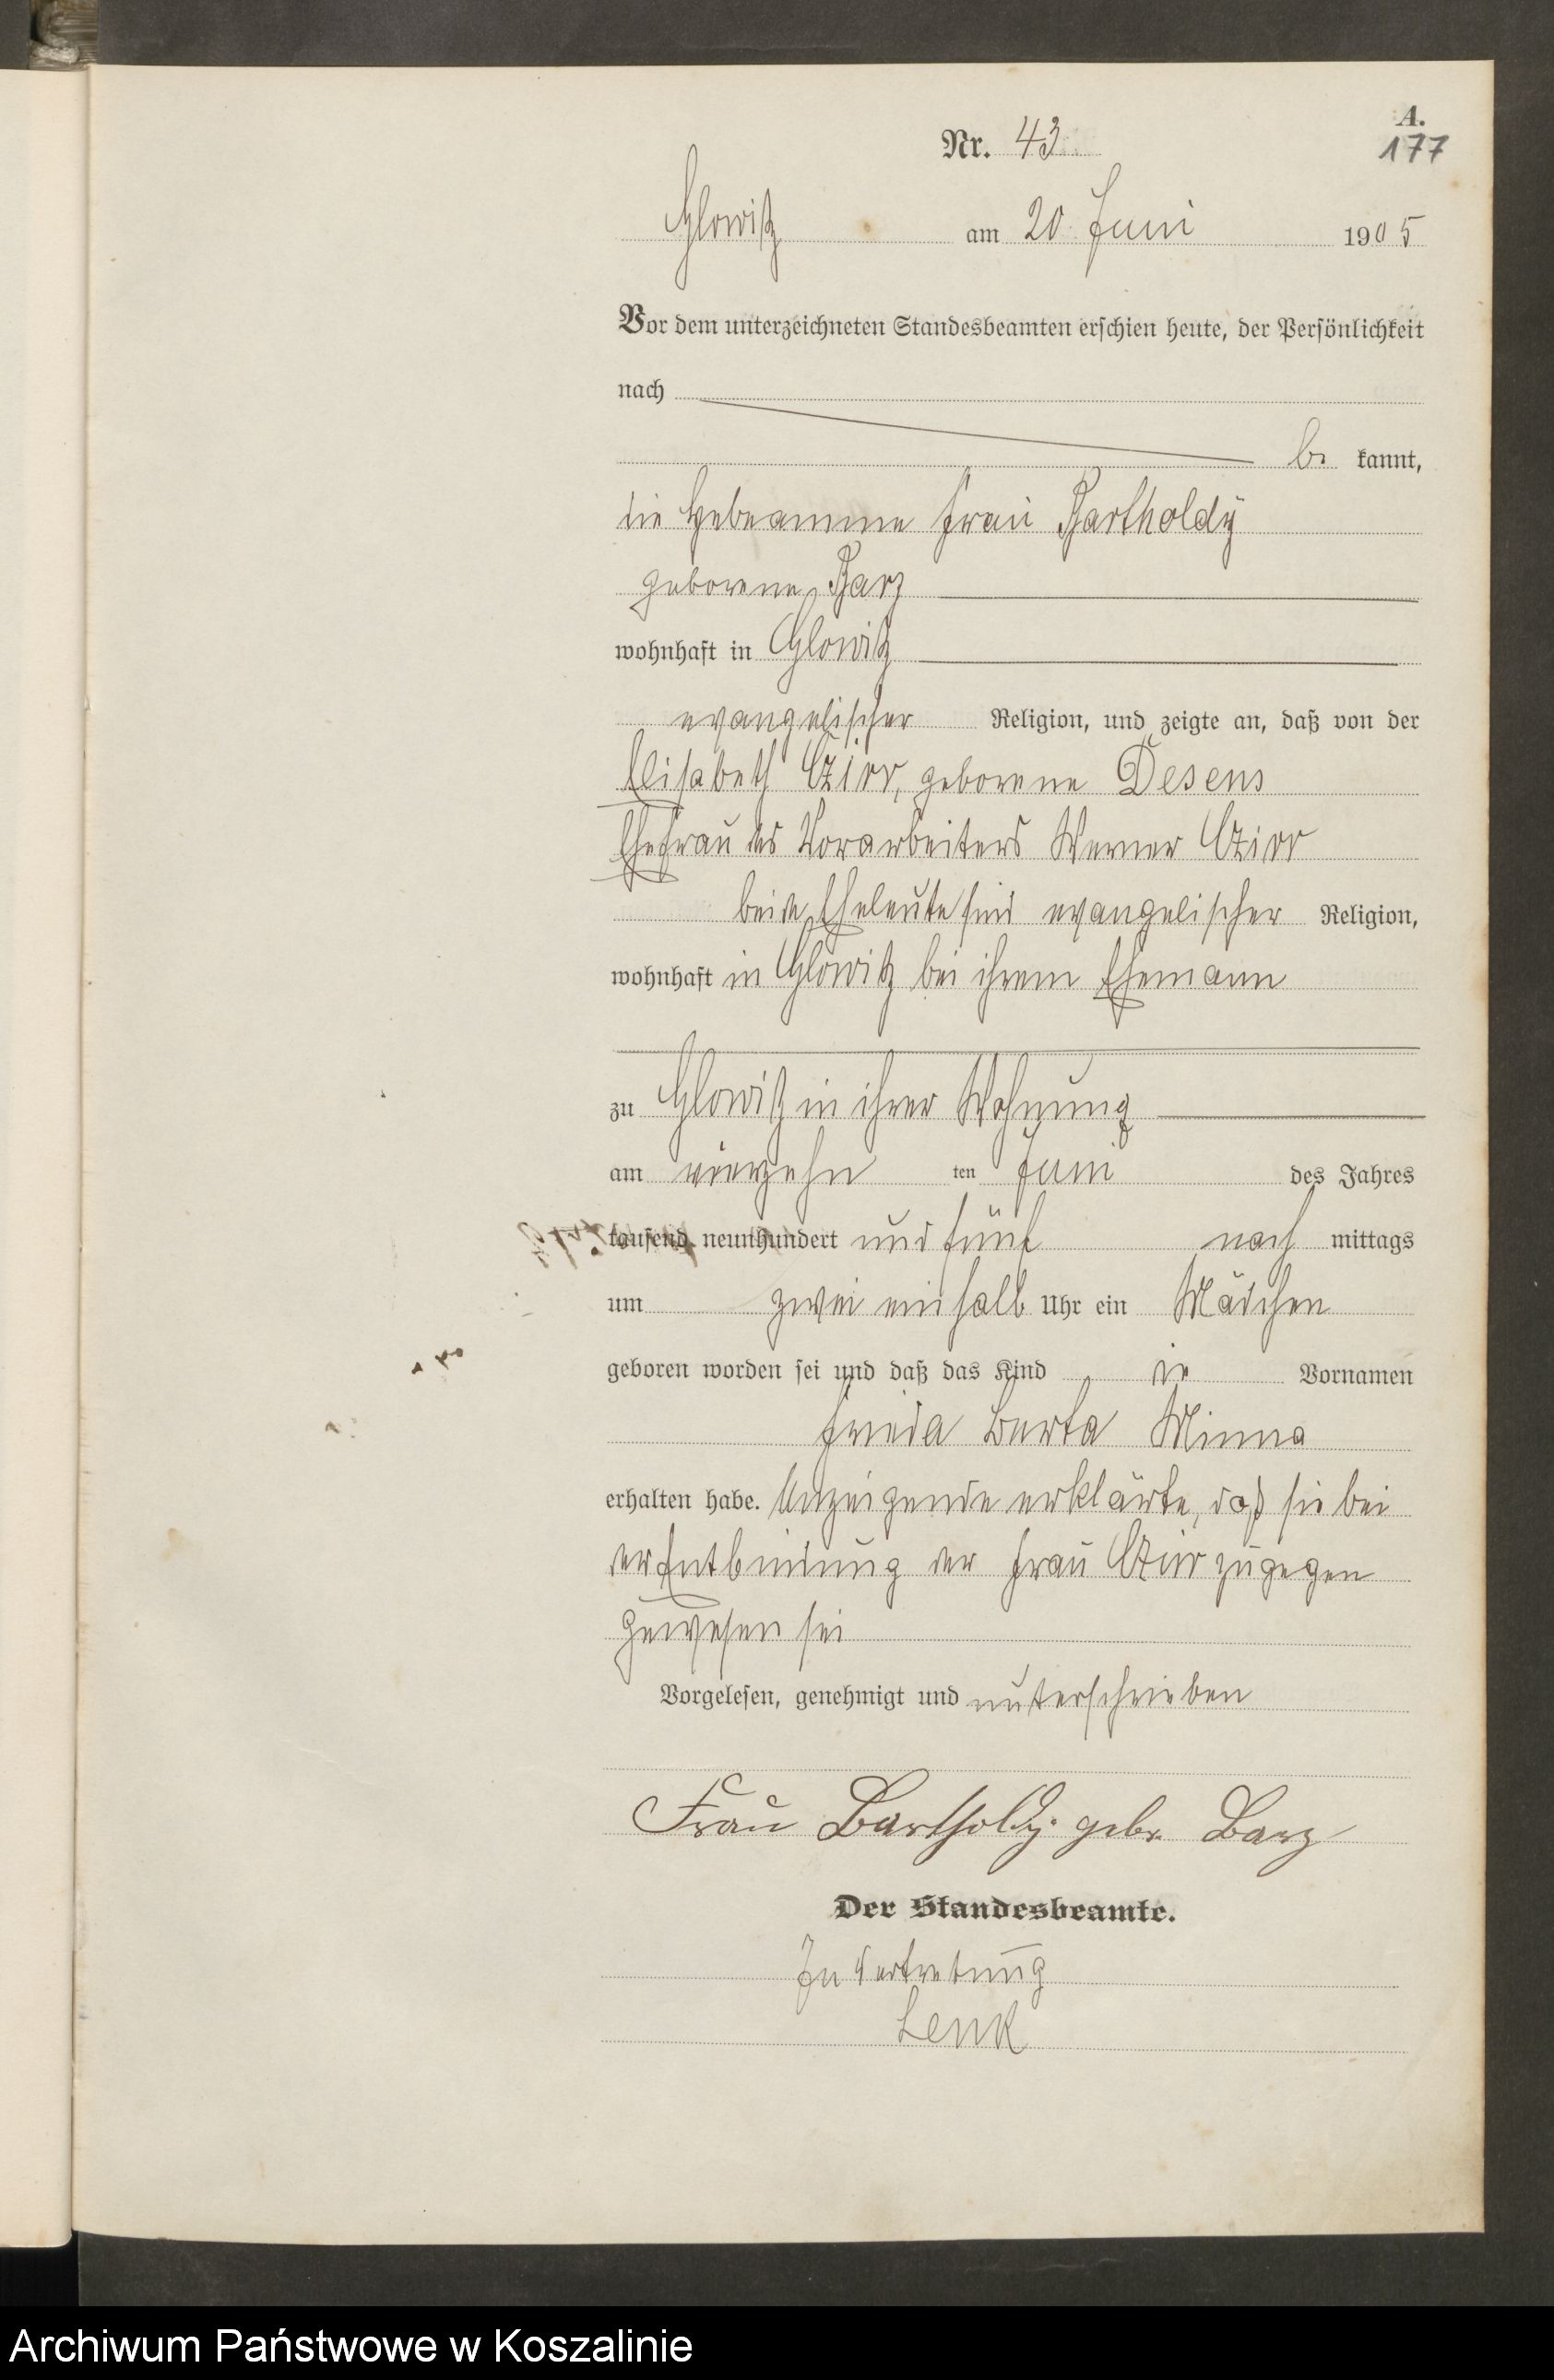 A.
Nr. 43
177
Glowitz am 20. Juni 1905
Vor dem unterzeichneten Standesbeamten erschien heute, der Persönlichkeit
nach
be kannt,
die Hebeamme Frau Bartholdy
geborene Barz
wohnhaft in Glowitz
evangelischer Religion, und zeigte an, daß von der
Elisabeth Czirr, geborene Desens
Ehefrau des Vorarbeiters Werner Czirr
beide Eheleute sind evangelischer Religion,
wohnhaft in Glowitz bei ihrem Ehemann
zu Glowitz in ihrer Wohnung
am vierzehn ten Juni des Jahres
tausend neunhundert und fünf nach mittags
um zwei einhalb Uhr ein Mädchen
geboren worden sei und daß das Kind die Vornamen
Frieda Berta Minna
erhalten habe. Anzeigende erklärte, daß sie bei
der Entbindung der Frau Czirr zugegen
gewesen sei
Vorgelesen, genehmigt und unterschrieben
Frau Bartholdy gebr. Barz
Der Standesbeamte.
In Vertretung
Lenk
Archiwum Państwowe w Koszalinie